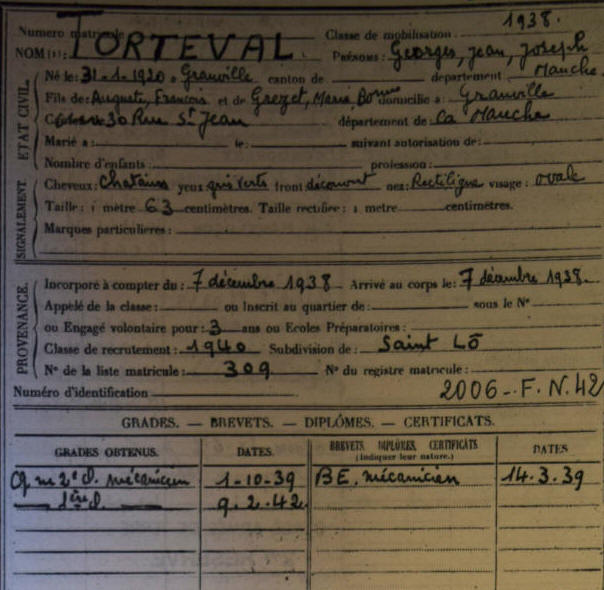 Numero matricule Classe de mobilisation : 1938.
NOM (1) : TORTEVAL Prénoms : Georges, Jean, Joseph
Né le : 31-1-1920 à Granville canton de département Manche
Fils de : Auguste, François et de Grezet, Maria domicilié à : Granville
30 Rue St Jean département de : La Manche
Marié à : le : suivant autorisation de :
Nombre d'enfants : profession :
ETAT CIVIL.
Cheveux : Chatains yeux gris verts front découvert nez : Rectiligne visage : ovale
Taille : 1 mètre 63 centimètres. Taille rectifiée : 1 metre centimètres.
Marques particulieres :
SIGNALEMENT
Incorporé à compter du : 7 décembre 1938 Arrivé au corps le : 7 décembre 1938.
Appelé de la classe : ou Inscrit au quartier de : sous le N°
ou Engagé volontaire pour : 3 ans ou Ecoles Préparatoires :
Classe de recrutement : 1940 Subdivision de : Saint Lô
N° de la liste matricule : 309 N° du registre matricule :
PROVENANCE.
Numéro d'identification 2006 - F.N.42
GRADES. — BREVETS. — DIPLÔMES. — CERTIFICATS.
GRADES OBTENUS. DATES. BREVETS, DIPLÔMES, CERTIFICATS DATES
(Indiquer leur nature.)
Qr me 2e cl. mécanicien 1-10-39 BE. mécanicien 14.3.39
— 1ère cl. — 9.2.42